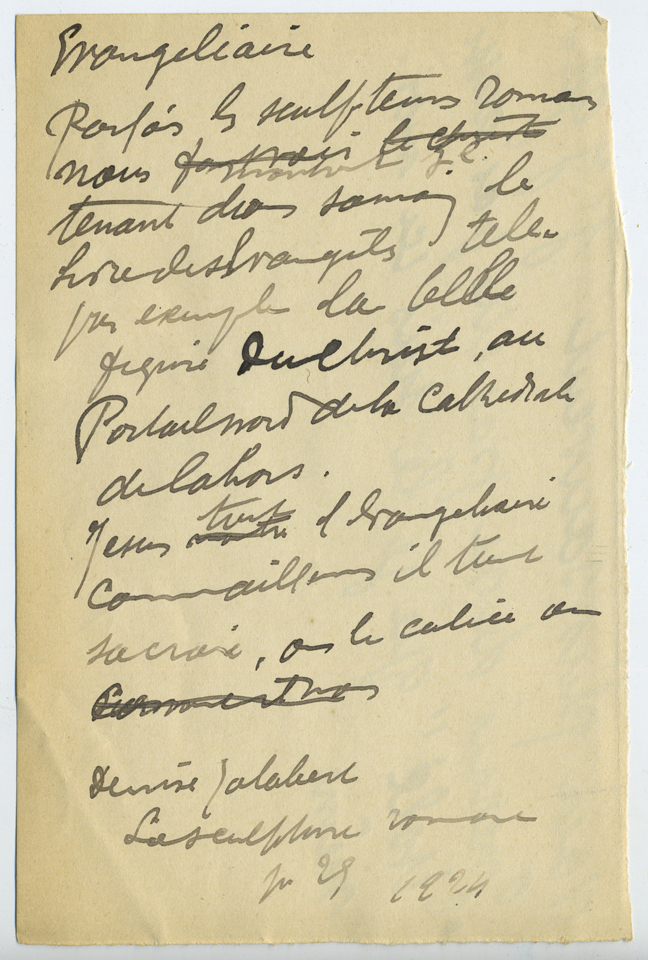 Evangeliaire
Parfois les sculpteurs romans
nous montrent J. C.
tenant dans sa main le
Livre des Evangiles, telle
par exemple la belle
figure du Christ, au
Portail nord de la Cathedrale
de Cahors.
Jesus tient l'Evangeliaire
comme ailleurs il tient
sa croix, ou le calice ou
Denise Jalabert
La sculpture romane
p 29 1924